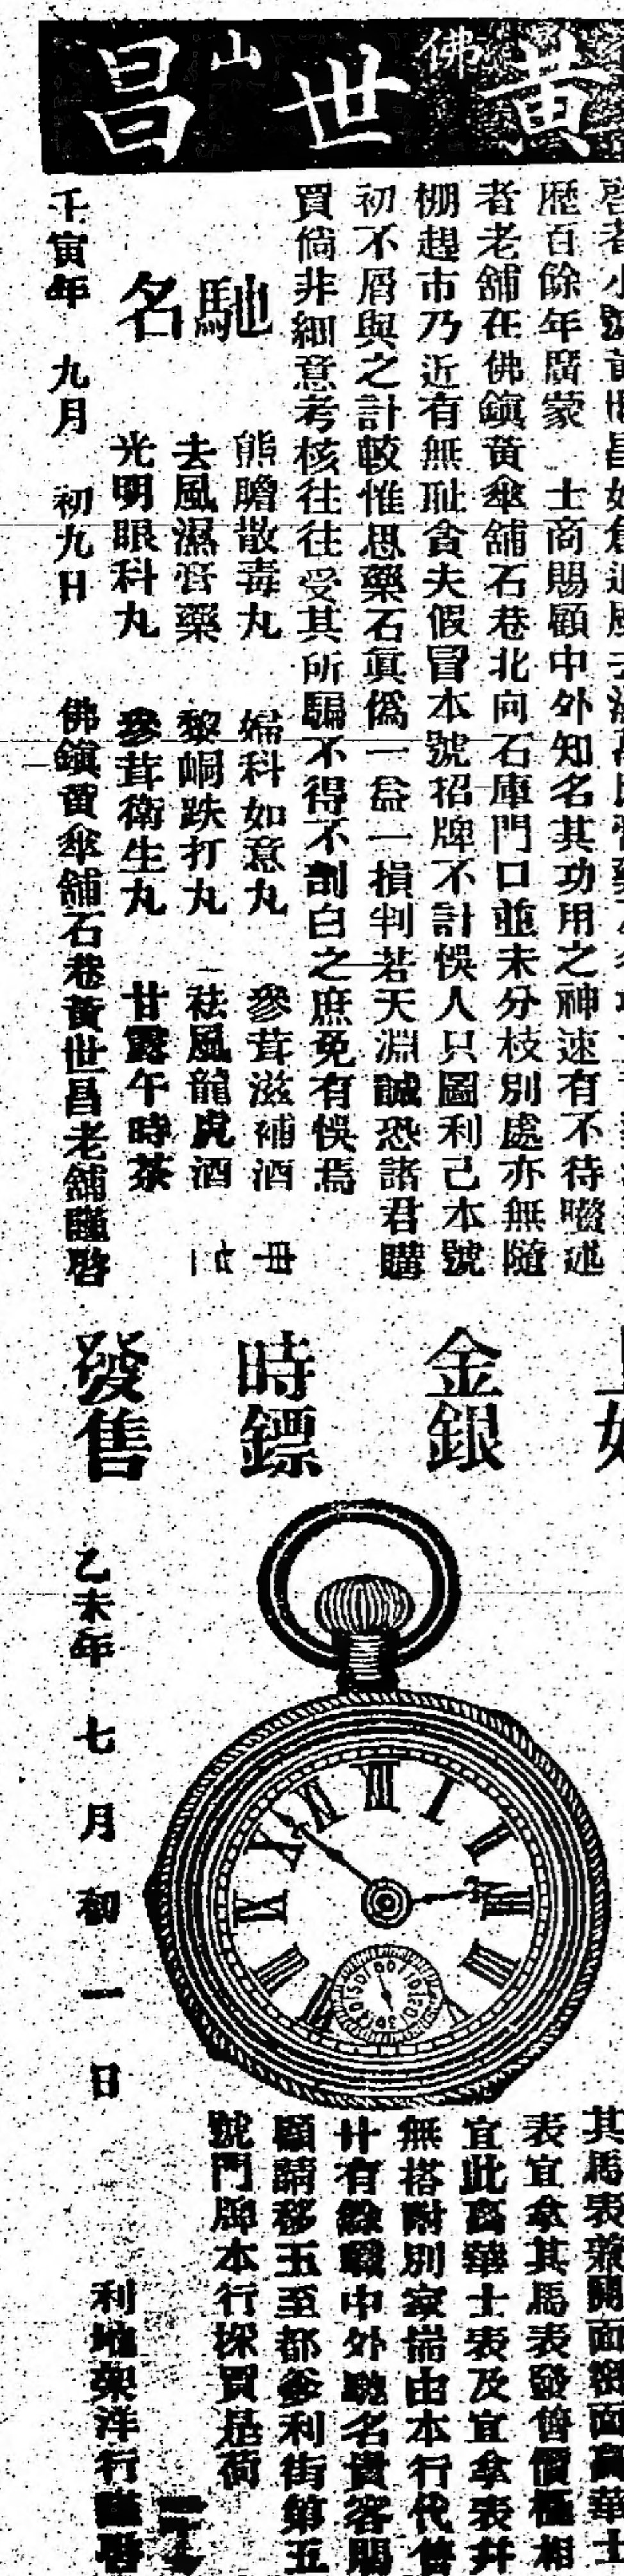 佛山
黃世昌
歷百餘年廣蒙 士商賜顧中外知名其功用之神速有不待贅述
者老舖在佛鎮黃傘舖石巷北向石庫門口並未分枝別處亦無隨
棚趕市乃近有無耻貪夫假冒本號招牌不計悞人只圖利己本號
初不屑與之計較惟思藥石眞偽一益一損判若天淵誠恐諸君購
買倘非細意考核往往受其所騙不得不剖白之庶免有悞焉
馳名
熊膽散毒丸 婦科如意丸 參茸滋補酒
去風濕膏藥 黎峒跌打丸 祛風龍虎酒
光明眼科丸 參茸衛生丸 甘露午時茶
壬寅年 九月 初九日 佛鎮黃傘舖石巷黃世昌老舖謹啓
金銀
時鏢
發售
乙未年 七月初一日
其馬表兼開面密面高華士
表宜拿其馬表發售價極相
宜此高華士表及宜拿表幷
無搭附別家耑由本行代售
廿有餘職中外馳名貴客賜
顧請移玉至都爹利街第五
號門牌本行採買是荷
洋行謹啓